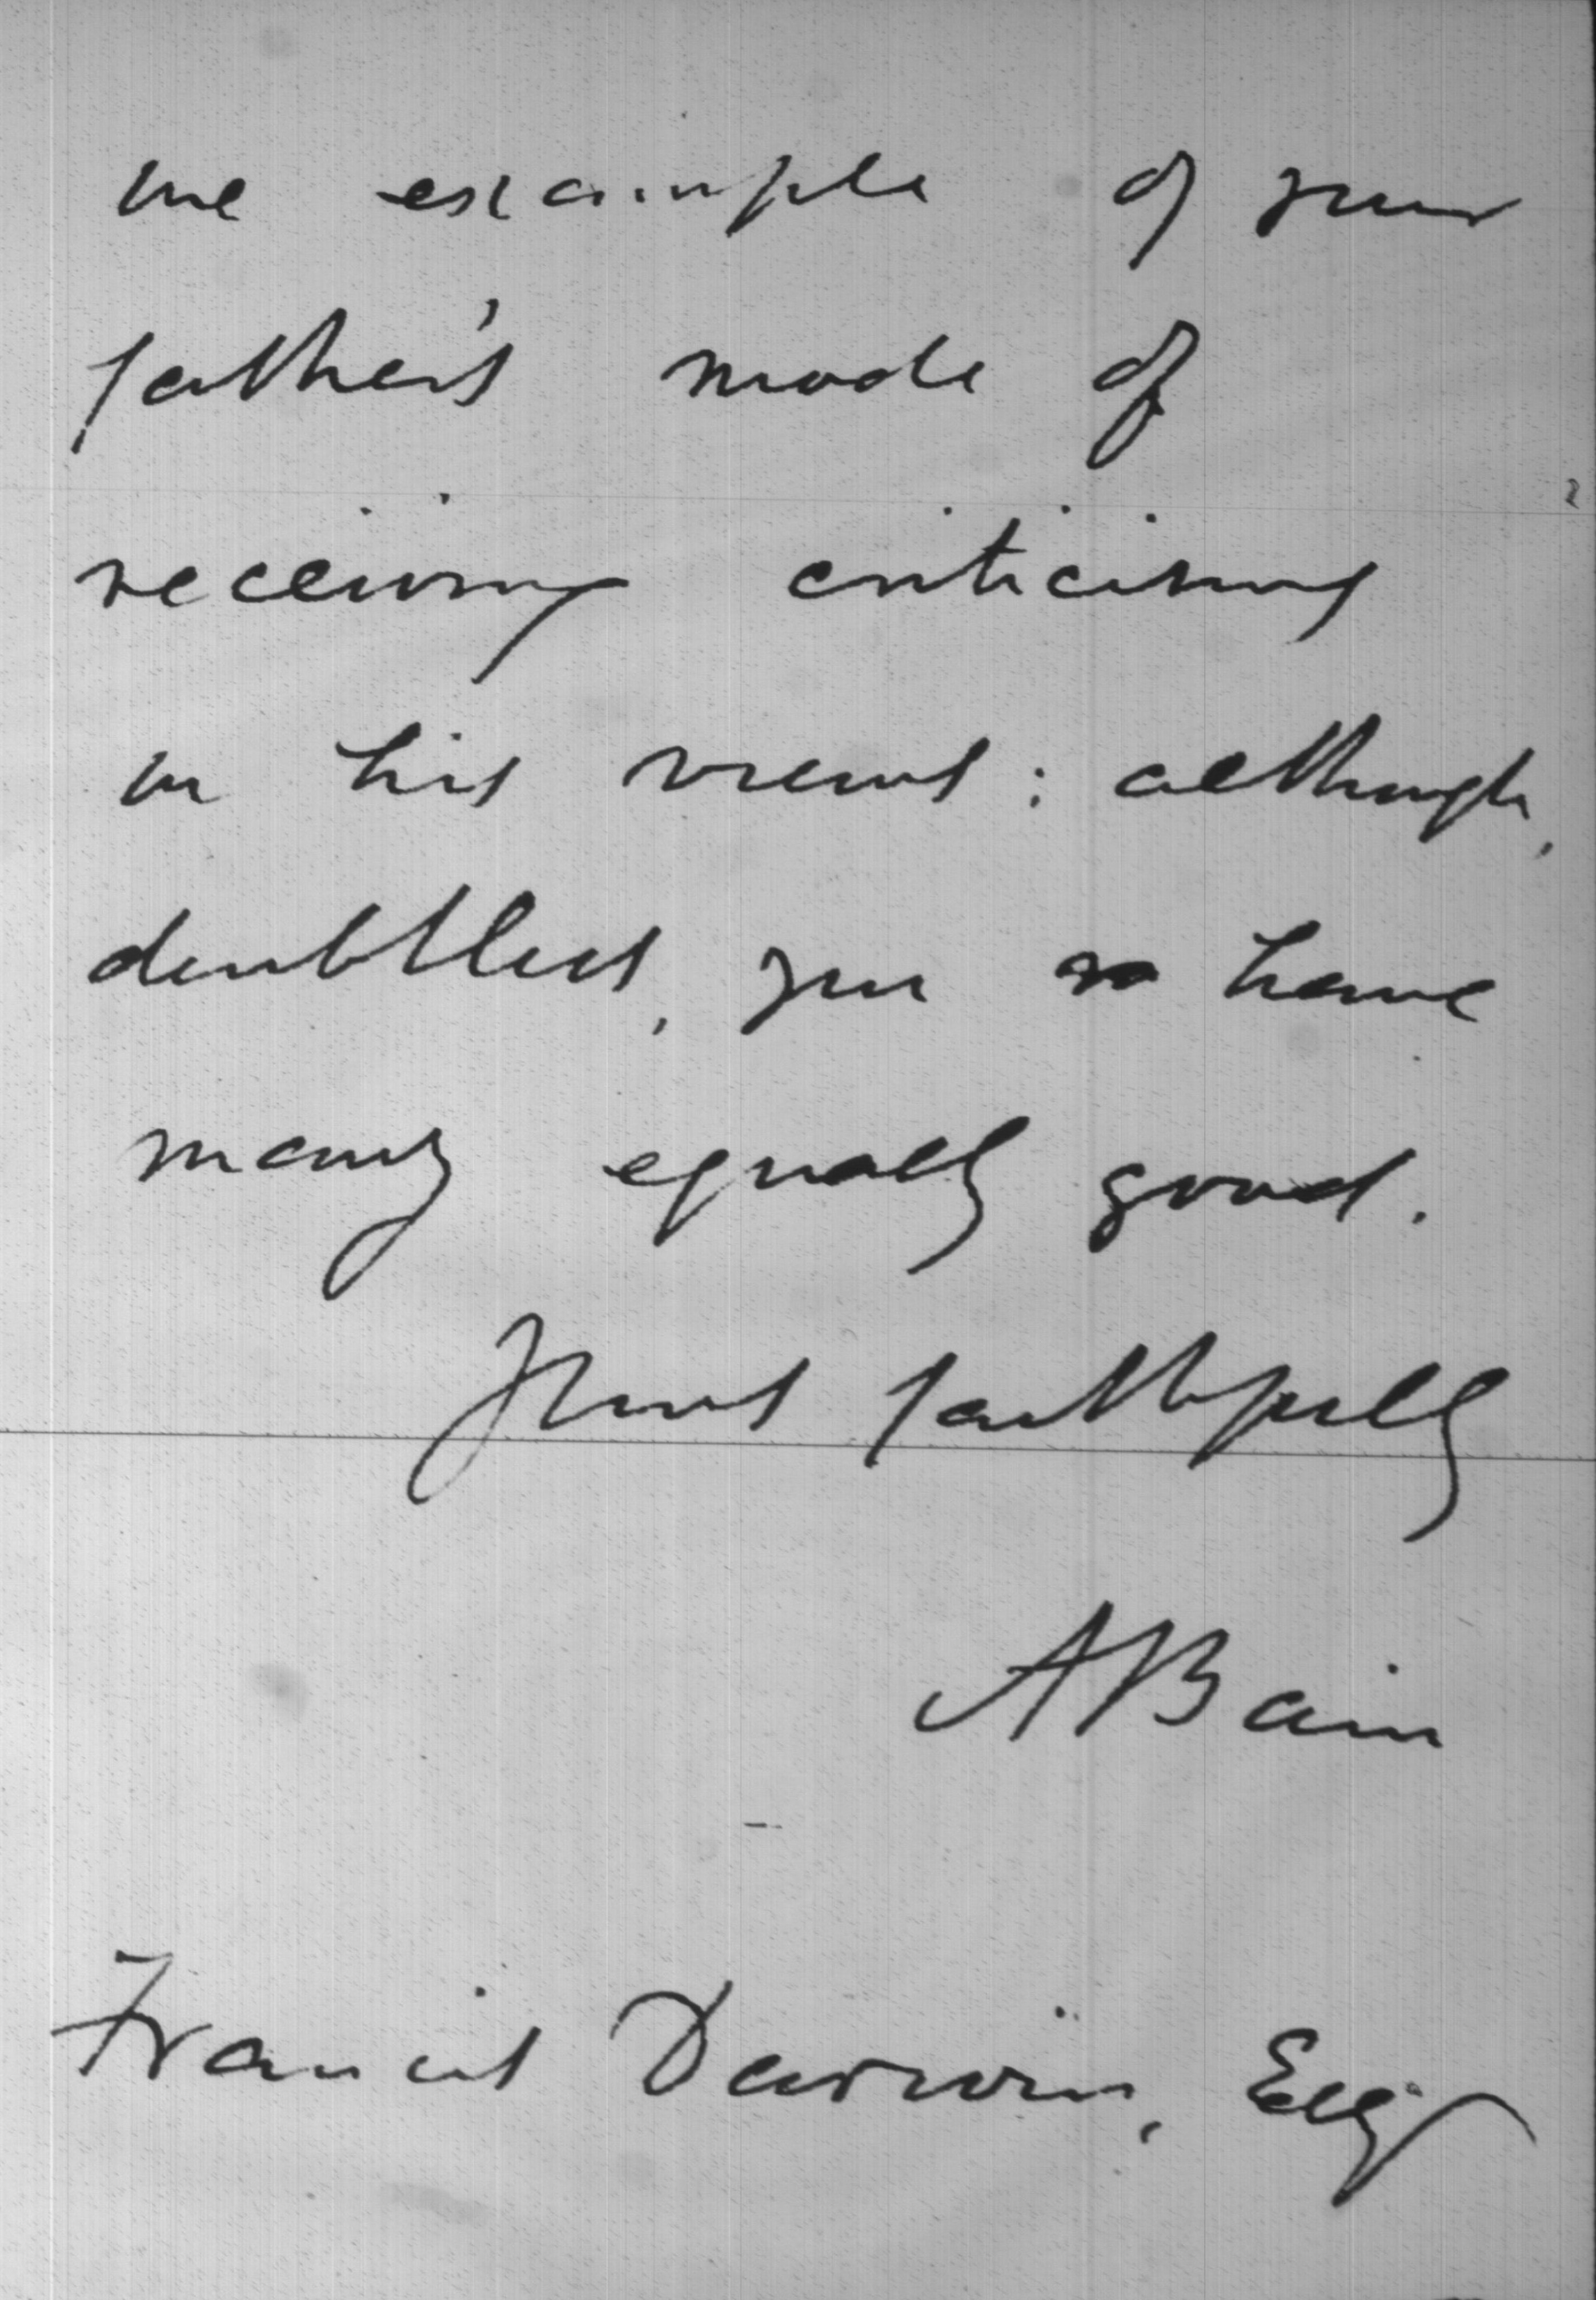 one example of your
father's mode of
receiving criticisms
on his views: although,
doubtless, you have
many equally good.
Yours faithfully
A Bain
Francis Darwin, Esq